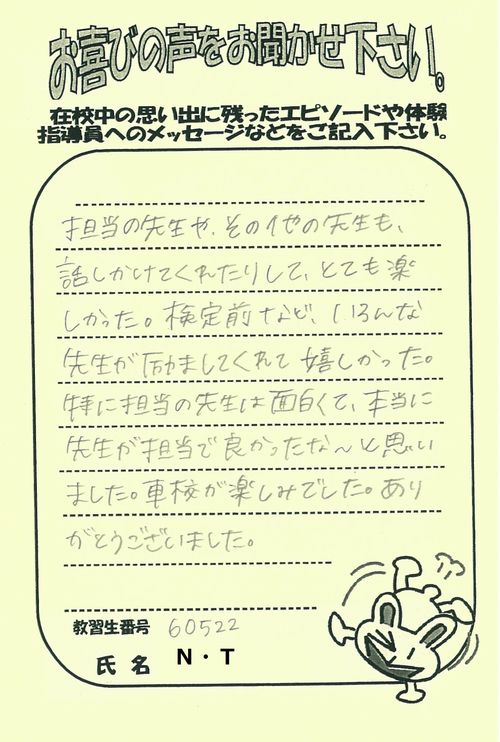 お喜びの声をお聞かせ下さい。
在校中の思い出に残ったエピソードや体験
指導員へのメッセージなどをご記入下さい。
担当の先生や、その他の先生も、
話しかけてくれたりして、とても楽
しかった。検定前など、いろんな
先生が励ましてくれて嬉しかった。
特に担当の先生は面白くて、本当に
先生が担当で良かったな～と思い
ました。車校が楽しみでした。あり
がとうございました。
教習生番号 60522
氏名 N・T